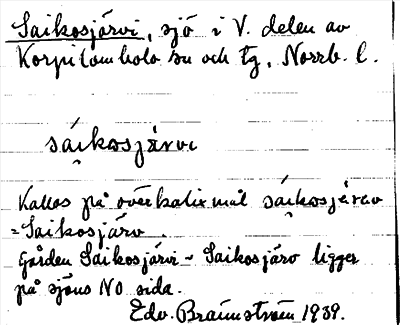 Saikosjärvi, sjö i V. delen av
Korpilombolo sn och tg, Norrb. l.
sáikosjärvi
Kallas på överkalixmål sáikosjäräv
= Saikosjärv.
Gården Saikosjärvi ~ Saikosjärv ligger
på sjöns NO sida.
Edv. Brännström 1939.